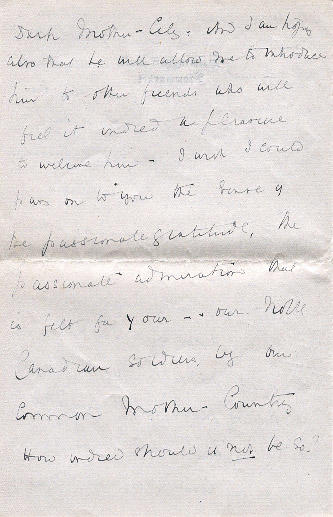 Dark Mother-City. And I am hoping
also that he will allow me to introduce
him to other friends who will
feel it indeed a pleasure
to welcome him - I wish I could
pass on to you the sense of
the passionate gratitude, the
passionate admiration that
is felt for your - our noble
Canadian soldiers, by our
Common Mother-Country
How indeed should it not be so?